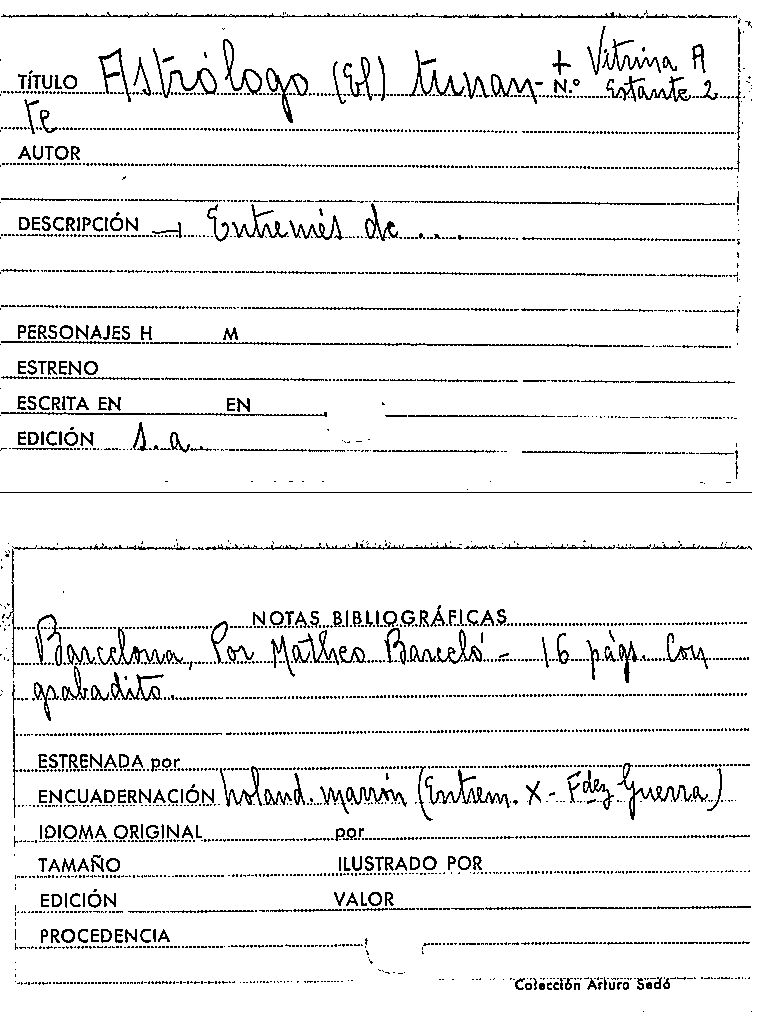 TÍTULO Astrólogo (El) tunan- + Vitrina A
N.º Estante 2
te
AUTOR
DESCRIPCIÓN → Entremés de ...
PERSONAJES H M
ESTRENO
ESCRITA EN EN
EDICIÓN s. a.
NOTAS BIBLIOGRÁFICAS
Barcelona, Por Matheo Barceló - 16 págs. Con
grabadito.
ESTRENADA por
ENCUADERNACIÓN holand. marrón (Entrem. X - Fdez-Guerra)
IDIOMA ORIGINAL por
TAMAÑO ILUSTRADO POR
EDICIÓN VALOR
PROCEDENCIA
Colección Arturo Sedó